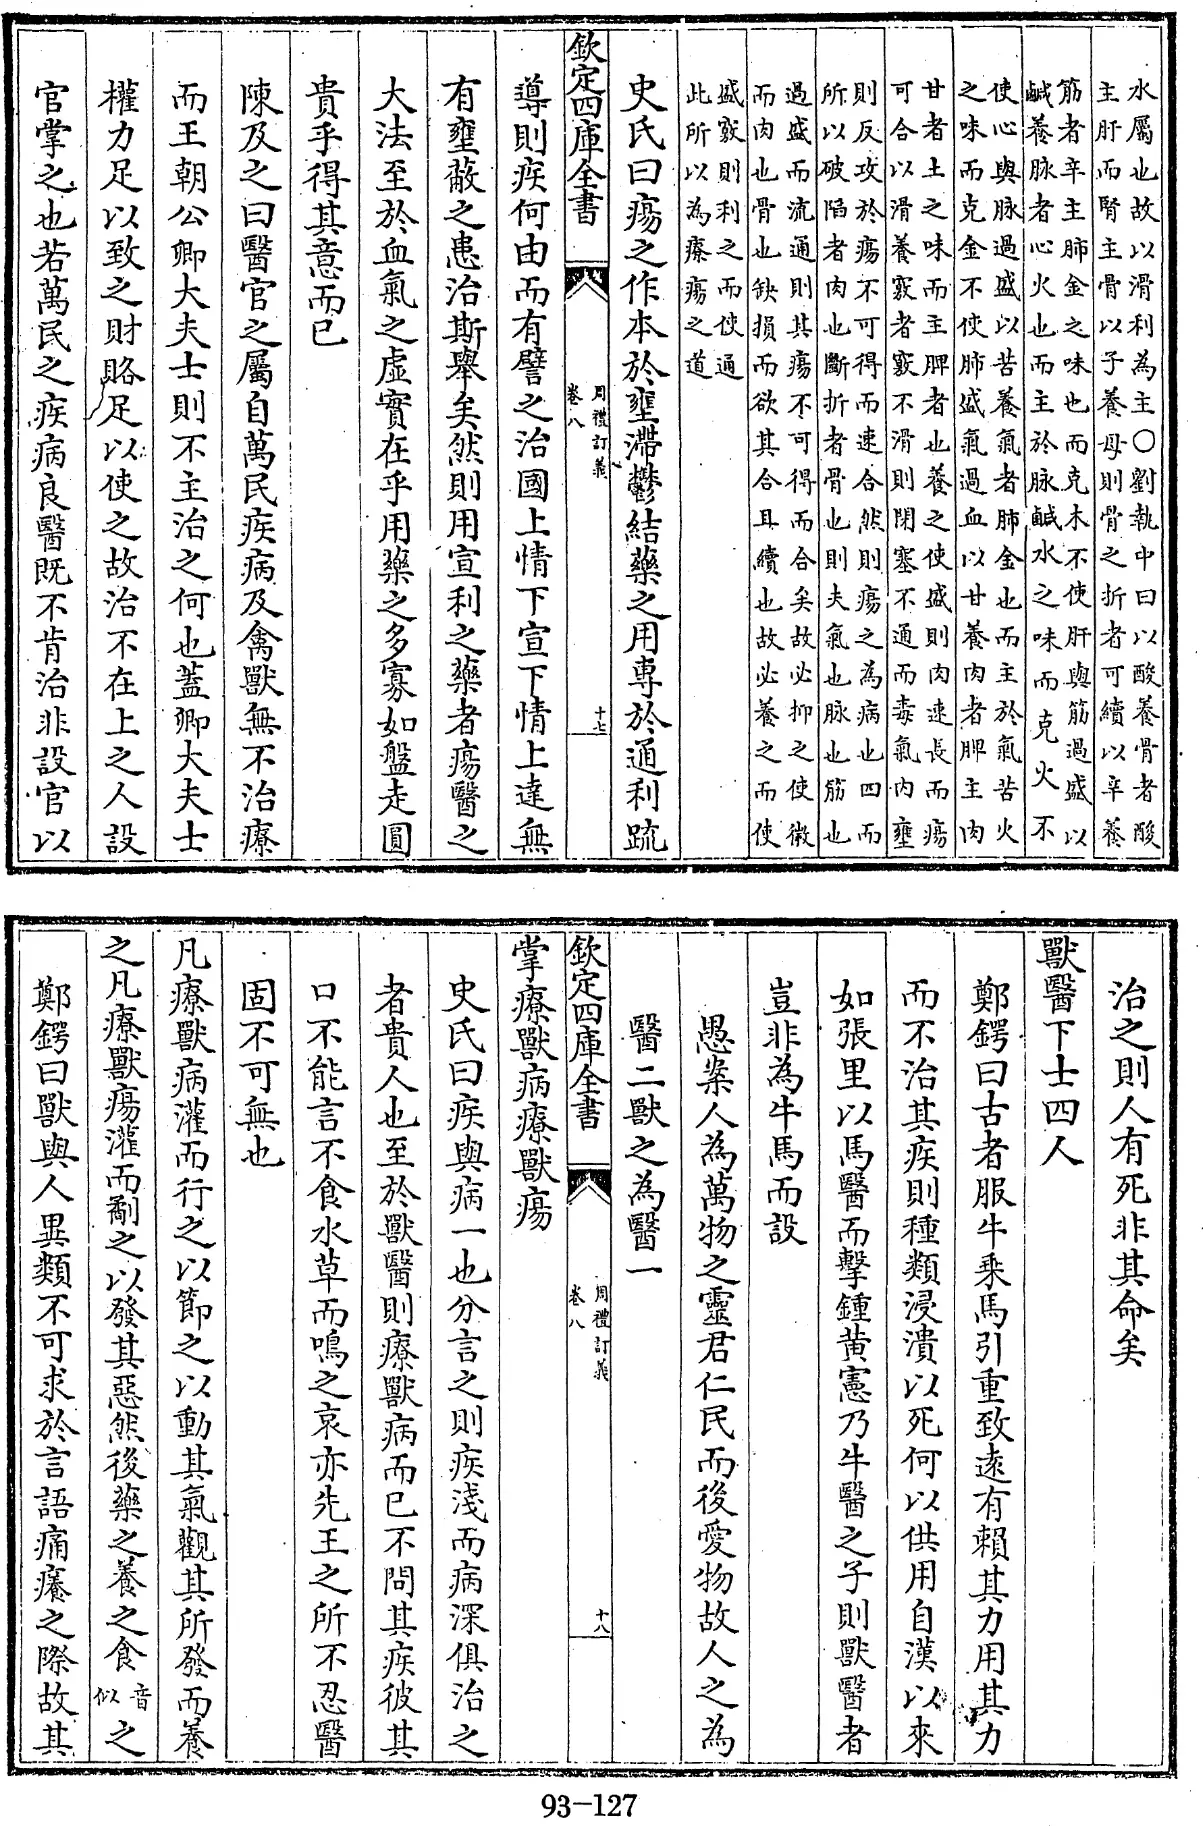 水屬也故以滑利為主○劉執中曰以酸養骨者酸
主肝而腎主骨以子養母則骨之折者可續以辛養
筋者辛主肺金之味也而克木不使肝與筋過盛以
鹹養脉者心火也而主於脉鹹水之味而克火不
使心與脉過盛以苦養氣者肺金也而主於氣苦火
之味而克金不使肺盛氣過血以甘養肉者脾主肉
甘者土之味而主脾者也養之使盛則肉速長而瘍
可合以滑養竅者竅不滑則閉塞不通而毒氣內壅
則反攻於瘍不可得而速合然則瘍之為病也四而
所以破陷者肉也斷折者骨也則夫氣也脉也筋也
過盛而流通則其瘍不可得而合矣故必抑之使微
而肉也骨也缺損而欲其合且續也故必養之而使
盛竅則利之而使通
此所以為療瘍之道
史氏曰瘍之作本於壅滯鬱結藥之用專於通利䟽
欽定四庫全書
周禮訂義
卷八
十七
導則疾何由而有譬之治國上情下宣下情上達無
有壅蔽之患治斯舉矣然則用宣利之藥者瘍醫之
大法至於血氣之虛實在乎用藥之多寡如盤走圓
貴乎得其意而已
陳及之曰醫官之屬自萬民疾病及禽獸無不治療
而王朝公卿大夫士則不主治之何也蓋卿大夫士
權力足以致之財賂足以使之故治不在上之人設
官掌之也若萬民之疾病良醫既不肯治非設官以
治之則人有死非其命矣
獸醫下士四人
鄭鍔曰古者服牛乘馬引重致遠有賴其力用其力
而不治其疾則種類浸潰以死何以供用自漢以來
如張里以馬醫而擊鍾黄憲乃牛醫之子則獸醫者
豈非為牛馬而設
愚案人為萬物之靈君仁民而後愛物故人之為
醫二獸之為醫一
欽定四庫全書
周禮訂義
卷八
十八
掌療獸病療獸瘍
史氏曰疾與病一也分言之則疾淺而病深俱治之
者貴人也至於獸醫則療獸病而已不問其疾彼其
口不能言不食水草而鳴之哀亦先王之所不忍醫
固不可無也
凡療獸病灌而行之以節之以動其氣觀其所發而養
之凡療獸瘍灌而劀之以發其惡然後藥之養之食音似之
鄭鍔曰獸與人異類不可求於言語痛癢之際故其
93-127